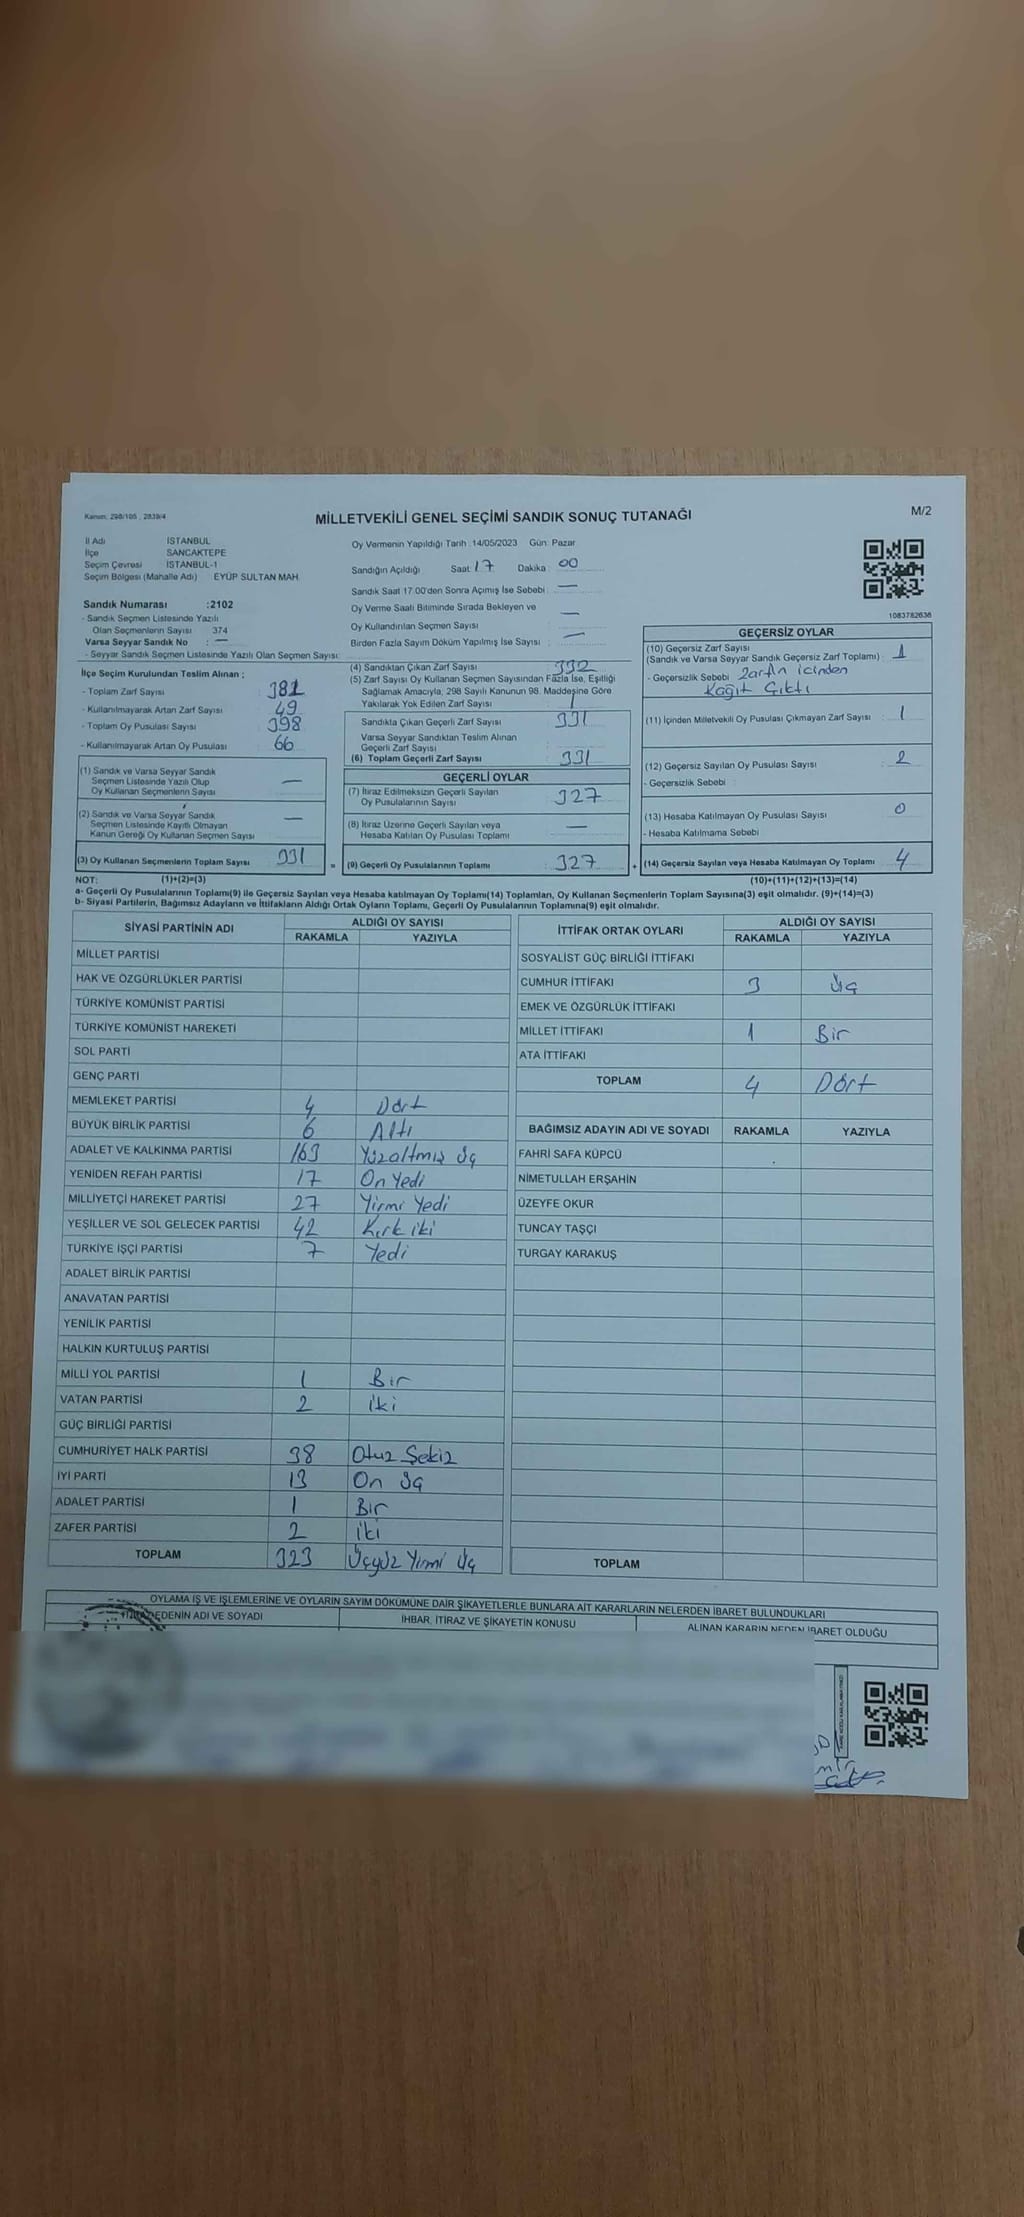 Kanun: 298/105 , 2839/4
MİLLETVEKİLİ GENEL SEÇİMİ SANDIK SONUÇ TUTANAĞI
M/2
İl Adı İSTANBUL
İlçe SANCAKTEPE
Seçim Çevresi İSTANBUL-1
Seçim Bölgesi (Mahalle Adı) EYÜP SULTAN MAH.
Sandık Numarası :2102
- Sandık Seçmen Listesinde Yazılı
Olan Seçmenlerin Sayısı 374
Varsa Seyyar Sandık No : —
- Seyyar Sandık Seçmen Listesinde Yazılı Olan Seçmen Sayısı:
İlçe Seçim Kurulundan Teslim Alınan ;
- Toplam Zarf Sayısı : 381
- Kullanılmayarak Artan Zarf Sayısı : 49
- Toplam Oy Pusulası Sayısı : 398
- Kullanılmayarak Artan Oy Pusulası : 66
(1) Sandık ve Varsa Seyyar Sandık
Seçmen Listesinde Yazılı Olup
Oy Kullanan Seçmenlerin Sayısı —
(2) Sandık ve Varsa Seyyar Sandık
Seçmen Listesinde Kayıtlı Olmayan
Kanun Gereği Oy Kullanan Seçmen Sayısı —
(3) Oy Kullanan Seçmenlerin Toplam Sayısı 331
Oy Vermenin Yapıldığı Tarih :14/05/2023 Gün: Pazar
Sandığın Açıldığı Saat: 17 Dakika : 00
Sandık Saat 17.00'den Sonra Açımış İse Sebebi : —
Oy Verme Saati Bitiminde Sırada Bekleyen ve
Oy Kullandırılan Seçmen Sayısı : —
Birden Fazla Sayım Döküm Yapılmış İse Sayısı : —
(4) Sandıktan Çıkan Zarf Sayısı : 332
(5) Zarf Sayısı Oy Kullanan Seçmen Sayısından Fazla İse, Eşitliği
Sağlamak Amacıyla, 298 Sayılı Kanunun 98. Maddesine Göre
Yakılarak Yok Edilen Zarf Sayısı : 1
Sandıkta Çıkan Geçerli Zarf Sayısı : 331
Varsa Seyyar Sandıktan Teslim Alınan
Geçerli Zarf Sayısı :
(6) Toplam Geçerli Zarf Sayısı : 331
GEÇERLİ OYLAR
(7) İtiraz Edilmeksizin Geçerli Sayılan
Oy Pusulalarının Sayısı : 327
(8) İtiraz Üzerine Geçerli Sayılan veya
Hesaba Katılan Oy Pusulası Toplamı : —
= (9) Geçerli Oy Pusulalarının Toplamı : 327 +
1083782636
GEÇERSİZ OYLAR
(10) Geçersiz Zarf Sayısı
(Sandık ve Varsa Seyyar Sandık Geçersiz Zarf Toplamı) : 1
- Geçersizlik Sebebi : Zarfın içinden
Kağıt Çıktı
(11) İçinden Milletvekili Oy Pusulası Çıkmayan Zarf Sayısı : 1
(12) Geçersiz Sayılan Oy Pusulası Sayısı : 2
- Geçersizlik Sebebi :
(13) Hesaba Katılmayan Oy Pusulası Sayısı : 0
- Hesaba Katılmama Sebebi
(14) Geçersiz Sayılan veya Hesaba Katılmayan Oy Toplamı : 4
NOT: (1)+(2)=(3) (10)+(11)+(12)+(13)=(14)
a- Geçerli Oy Pusulalarının Toplamı(9) ile Geçersiz Sayılan veya Hesaba katılmayan Oy Toplamı(14) Toplamları, Oy Kullanan Seçmenlerin Toplam Sayısına(3) eşit olmalıdır. (9)+(14)=(3)
b- Siyasi Partilerin, Bağımsız Adayların ve İttifakların Aldığı Ortak Oyların Toplamı, Geçerli Oy Pusulalarının Toplamına(9) eşit olmalıdır.
SİYASİ PARTİNİN ADI ALDIĞI OY SAYISI
RAKAMLA YAZIYLA
MİLLET PARTİSİ
HAK VE ÖZGÜRLÜKLER PARTİSİ
TÜRKİYE KOMÜNİST PARTİSİ
TÜRKİYE KOMÜNİST HAREKETİ
SOL PARTİ
GENÇ PARTİ
MEMLEKET PARTİSİ 4 Dört
BÜYÜK BİRLİK PARTİSİ 6 Altı
ADALET VE KALKINMA PARTİSİ 163 Yüzaltmış üç
YENİDEN REFAH PARTİSİ 17 On Yedi
MİLLİYETÇİ HAREKET PARTİSİ 27 Yirmi Yedi
YEŞİLLER VE SOL GELECEK PARTİSİ 42 Kırk iki
TÜRKİYE İŞÇİ PARTİSİ 7 Yedi
ADALET BİRLİK PARTİSİ
ANAVATAN PARTİSİ
YENİLİK PARTİSİ
HALKIN KURTULUŞ PARTİSİ
MİLLİ YOL PARTİSİ 1 Bir
VATAN PARTİSİ 2 iki
GÜÇ BİRLİĞİ PARTİSİ
CUMHURİYET HALK PARTİSİ 38 Otuz Sekiz
İYİ PARTİ 13 On üç
ADALET PARTİSİ 1 Bir
ZAFER PARTİSİ 2 iki
TOPLAM 323 Üçyüz Yirmi üç
İTTİFAK ORTAK OYLARI ALDIĞI OY SAYISI
RAKAMLA YAZIYLA
SOSYALİST GÜÇ BİRLİĞİ İTTİFAKI
CUMHUR İTTİFAKI 3 üç
EMEK VE ÖZGÜRLÜK İTTİFAKI
MİLLET İTTİFAKI 1 Bir
ATA İTTİFAKI
TOPLAM 4 Dört
BAĞIMSIZ ADAYIN ADI VE SOYADI RAKAMLA YAZIYLA
FAHRİ SAFA KÜPCÜ
NİMETULLAH ERŞAHİN
ÜZEYFE OKUR
TUNCAY TAŞÇI
TURGAY KARAKUŞ
TOPLAM
OYLAMA İŞ VE İŞLEMLERİNE VE OYLARIN SAYIM DÖKÜMÜNE DAİR ŞİKAYETLERLE BUNLARA AİT KARARLARIN NELERDEN İBARET BULUNDUKLARI
EDENİN ADI VE SOYADI İHBAR, İTİRAZ VE ŞİKAYETİN KONUSU ALINAN KARARIN NEDEN İBARET OLDUĞU